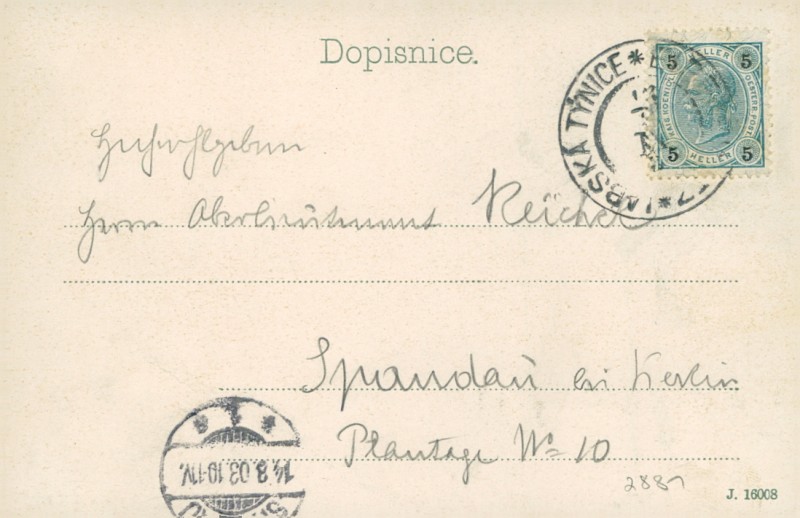 Dopisnice.
LABSKÁ TÝNICE *
5 HELLER 5
KAIS. KOENIGL. OESTERR. POST.
5 HELLER 5
Herrn Oberleutnant Reichel
Spandau bei Berlin
Plantage No 10
14.8.03.10-11V.
2887
J. 16008